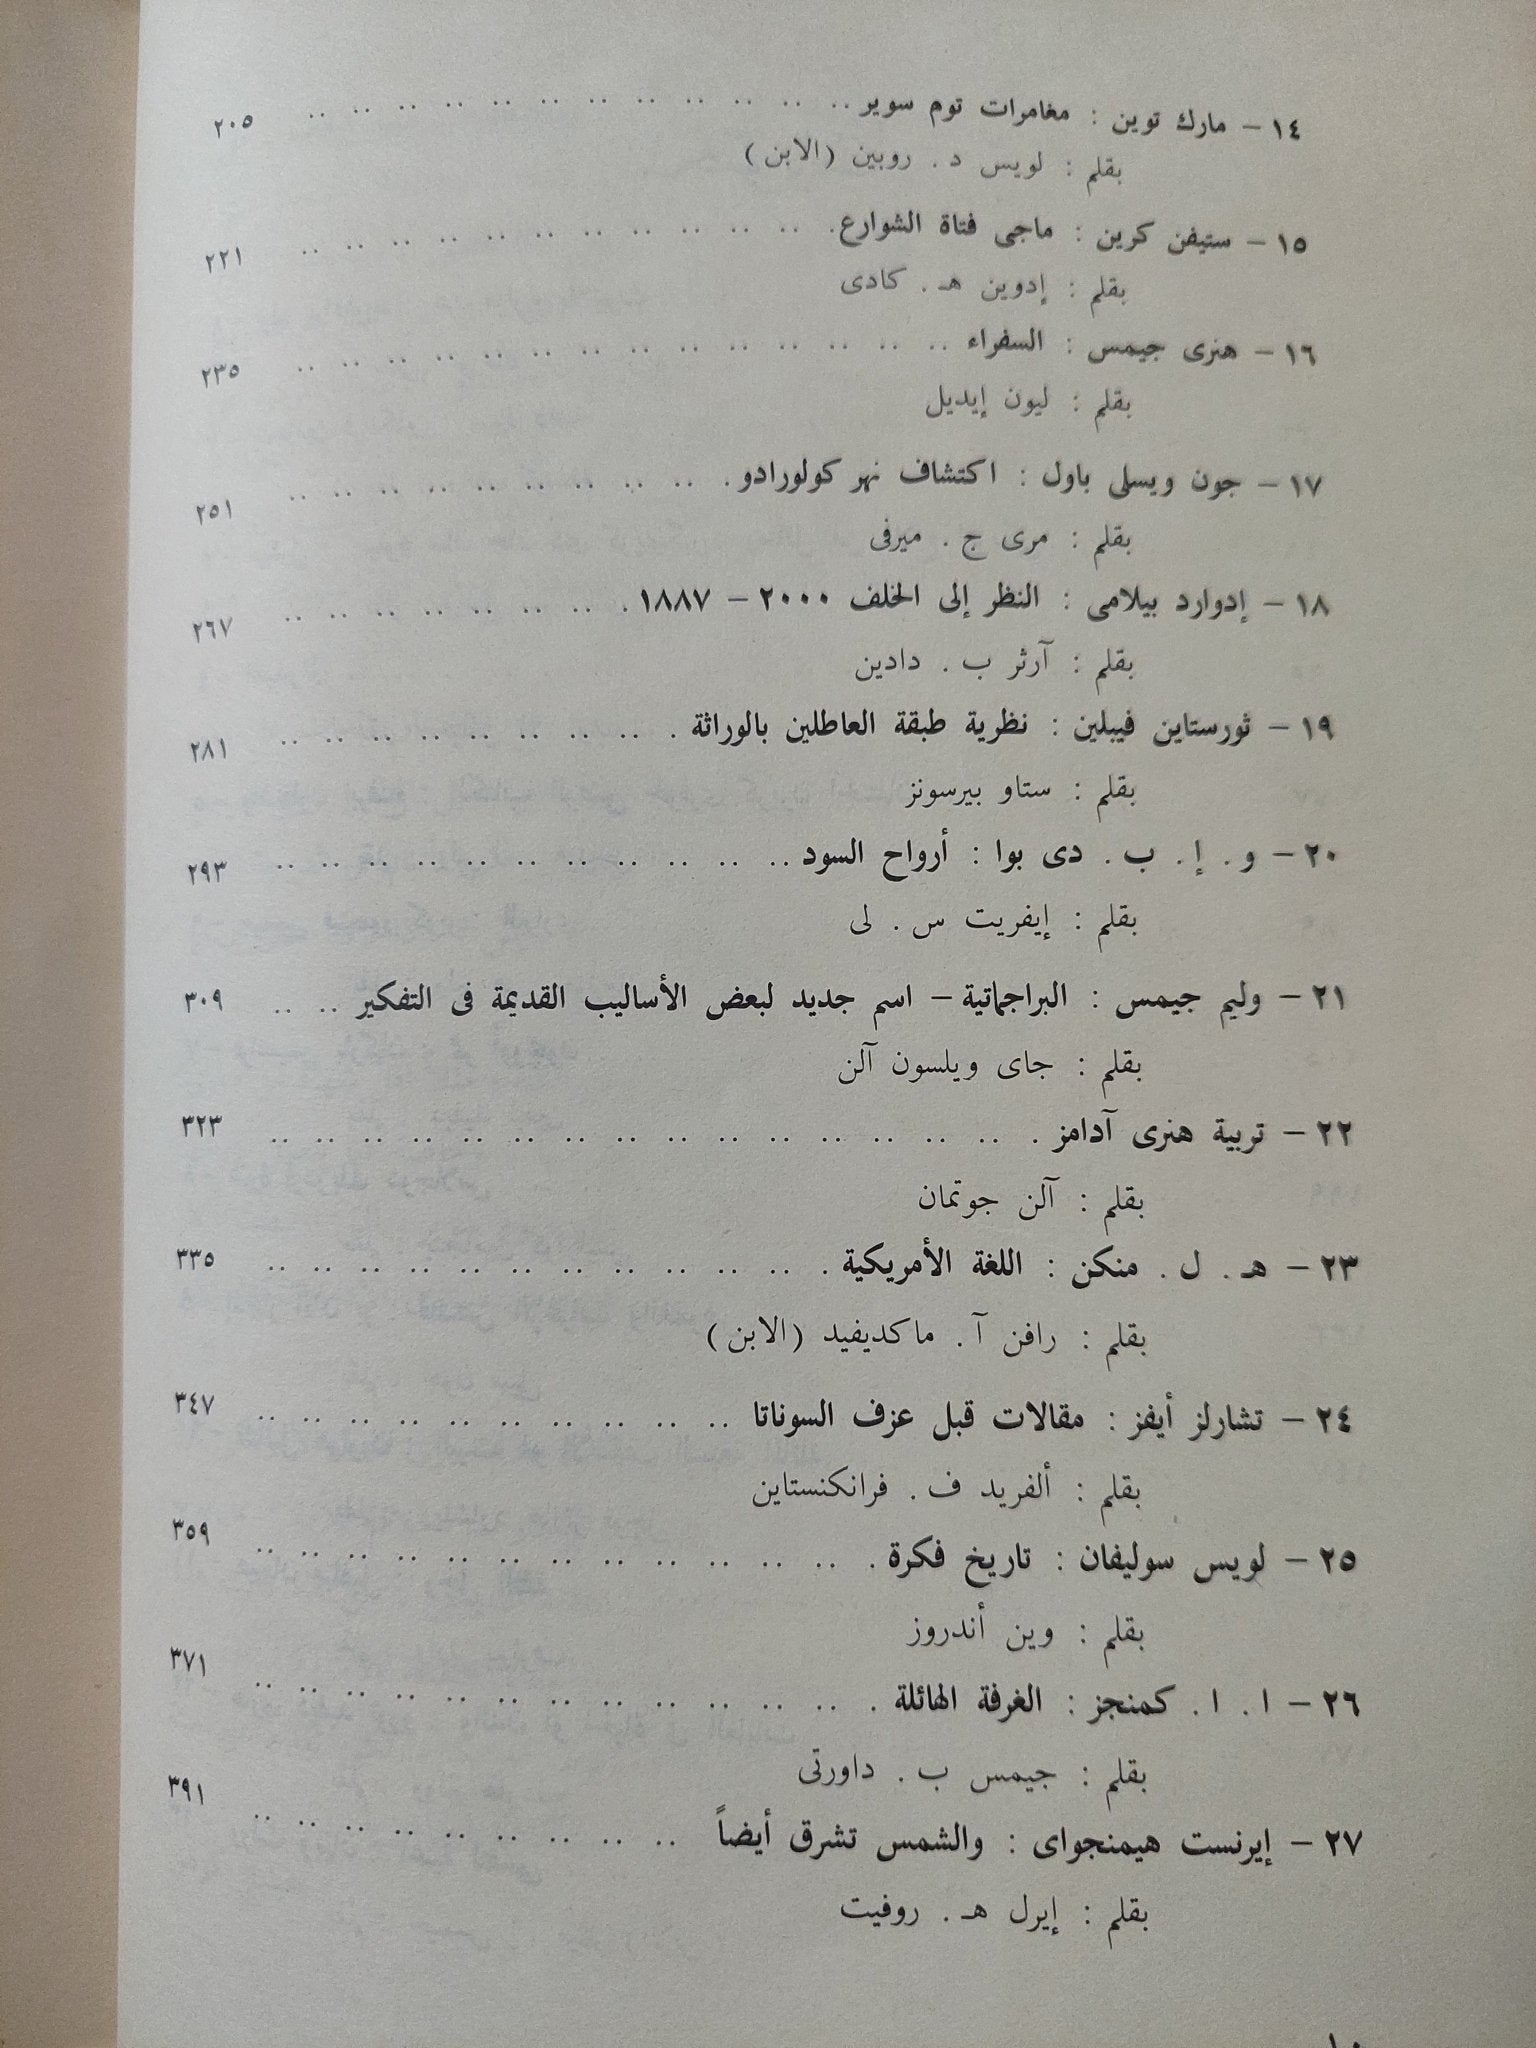 ١٤ – مارك توين : مغامرات توم سوير .. .. .. .. .. .. .. .. .. .. .. .. ٢٠٥
بقلم : لويس د . روبين (الابن)
١٥ – ستيفن كرين : ماجى فتاة الشوارع . .. .. .. .. .. .. .. .. .. .. .. ٢٢١
بقلم : إدوين هـ . كادى
١٦ – هنرى جيمس : السفراء .. .. .. .. .. .. .. .. .. .. .. .. .. .. ٢٣٥
بقلم : ليون إيديل
١٧ – جون ويسلى باول : اكتشاف نهر كولورادو . .. .. .. .. .. .. .. .. .. ٢٥١
بقلم : مرى ج . ميرفى
١٨ – إدوارد بيلامى : النظر إلى الخلف ٢٠٠٠ – ١٨٨٧ . .. .. .. .. .. .. .. ٢٦٧
بقلم : آرثر ب . دادين
١٩ – ثورستاين فيبلين : نظرية طبقة العاطلين بالوراثة . .. .. .. .. .. .. .. .. ٢٨١
بقلم : ستاو بيرسونز
٢٠ – و . إ . ب . دى بوا : أرواح السود .. .. .. .. .. .. .. .. .. .. .. ٢٩٣
بقلم : إيفريت س . لى
٢١ – وليم جيمس : البراجماتية – اسم جديد لبعض الأساليب القديمة فى التفكير .. .. ٣٠٩
بقلم : جاى ويلسون آلن
٢٢ – تربية هنرى آدامز . .. .. .. .. .. .. .. .. .. .. .. .. .. .. .. ٣٢٣
بقلم : آلن جوتمان
٢٣ – هـ . ل . منكن : اللغة الأمريكية . .. .. .. .. .. .. .. .. .. .. .. ٣٣٥
بقلم : رافن آ . ماكديفيد (الابن)
٢٤ – تشارلز أيفز : مقالات قبل عزف السوناتا .. .. .. .. .. .. .. .. .. .. ٣٤٧
بقلم : ألفريد ف . فرانكنستاين
٢٥ – لويس سوليفان : تاريخ فكرة . .. .. .. .. .. .. .. .. .. .. .. .. ٣٥٩
بقلم : وين أندروز
٢٦ – ا . ا . كمنجز : الغرفة الهائلة . .. .. .. .. .. .. .. .. .. .. .. .. ٣٧١
بقلم : جيمس ب . داورتى
٢٧ – إيرنست هيمنجواى : والشمس تشرق أيضاً .. .. .. .. .. .. .. .. .. ٣٩١
بقلم : إيرل هـ . روفيت